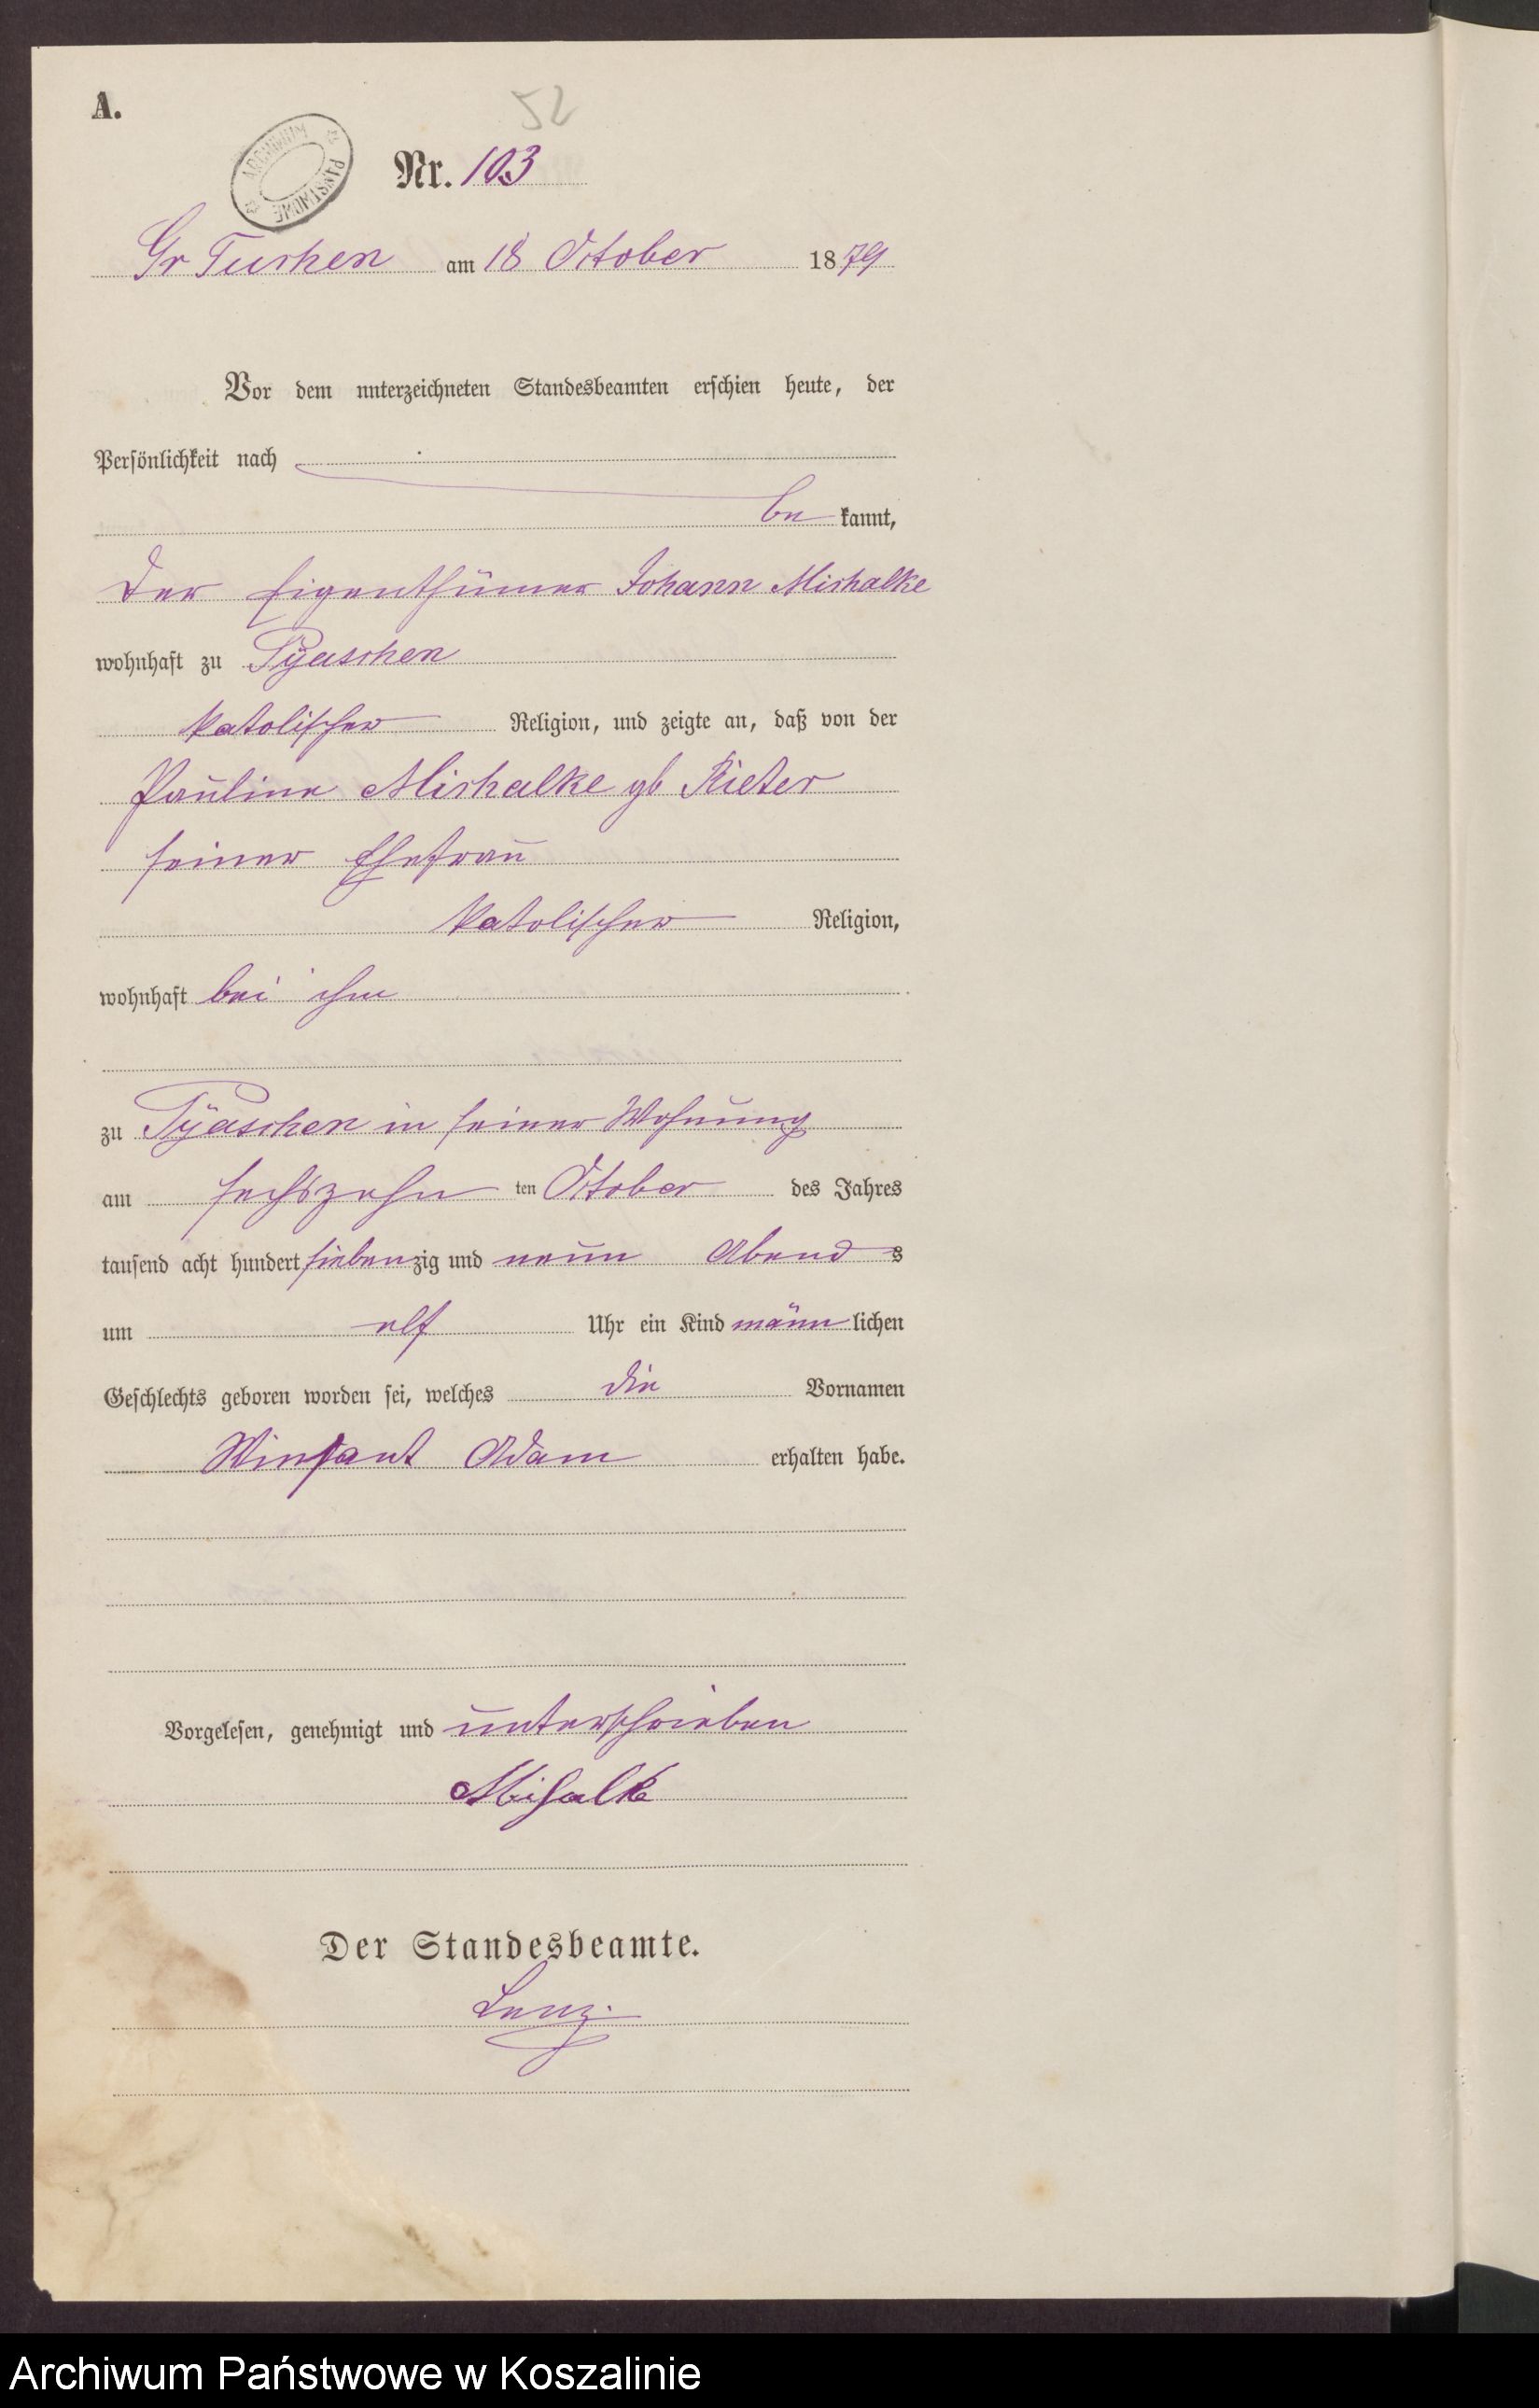 A.
52
ARCHIWUM PAŃSTWOWE
Nr. 103
Gr Tuchen am 18 October 1879
Vor dem unterzeichneten Standesbeamten erschien heute, der
Persönlichkeit nach
be kannt,
der Eigenthümer Johann Michalke
wohnhaft zu Pÿaschen
katolischer Religion, und zeigte an, daß von der
Pauline Michalke gb Rieter
seiner Ehefrau
katolischer Religion,
wohnhaft bei ihm
zu Pÿaschen in seiner Wohnung
am sechszehn ten October des Jahres
tausend acht hundert siebenzig und neun Abend s
um elf Uhr ein Kind männ lichen
Geschlechts geboren worden sei, welches die Vornamen
Winsant Adam erhalten habe.
Vorgelesen, genehmigt und unterschrieben
Mihalk
Der Standesbeamte.
Lenz.
Archiwum Państwowe w Koszalinie